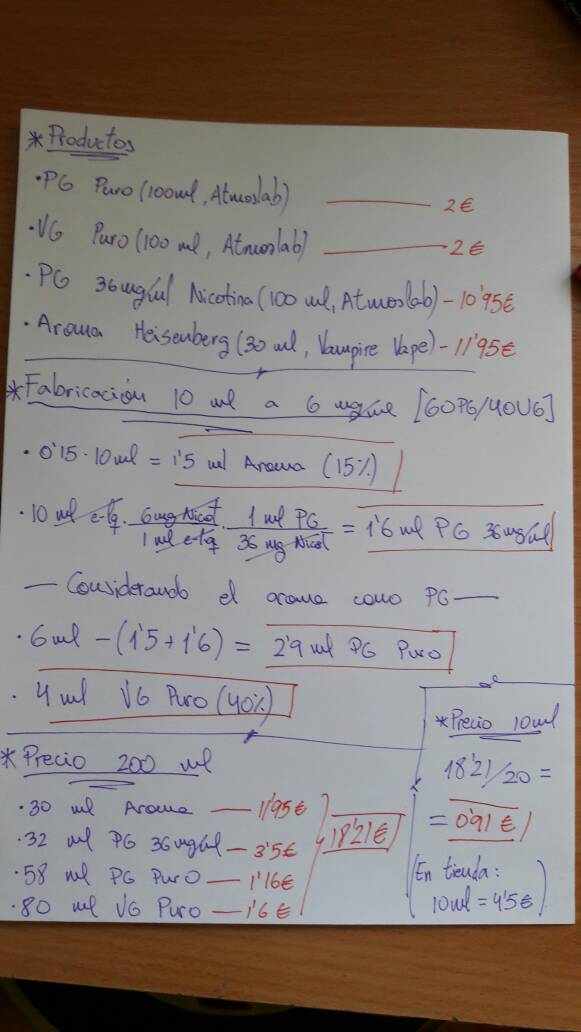 * Productos
· PG Puro (100ml, Atmoslab) —— 2€
· VG Puro (100 ml, Atmoslab) —— 2€
· PG 36mg/ml Nicotina (100 ml, Atmoslab) – 10'95€
· Aroma Heisenberg (30 ml, Vampire Vape) – 11'95€
* Fabricación 10 ml a 6 mg/ml [60PG/40VG]
· 0'15 · 10ml = 1'5 ml Aroma (15%)
· 10 ml e-lq · 6mg Nicot / 1 ml e-lq · 1 ml PG / 36 mg Nicot = 1'6 ml PG 36mg/ml
— Considerando el aroma como PG —
· 6 ml – (1'5 + 1'6) = 2'9 ml PG Puro
· 4 ml VG Puro (40%)
* Precio 200 ml
· 30 ml Aroma — 11'95€
· 32 ml PG 36mg/ml — 3'5€
· 58 ml PG Puro — 1'16€
· 80 ml VG Puro — 1'6€
18'21€
* Precio 10ml
18'21/20 =
= 0'91€
(En tienda:
10ml = 4'5€)